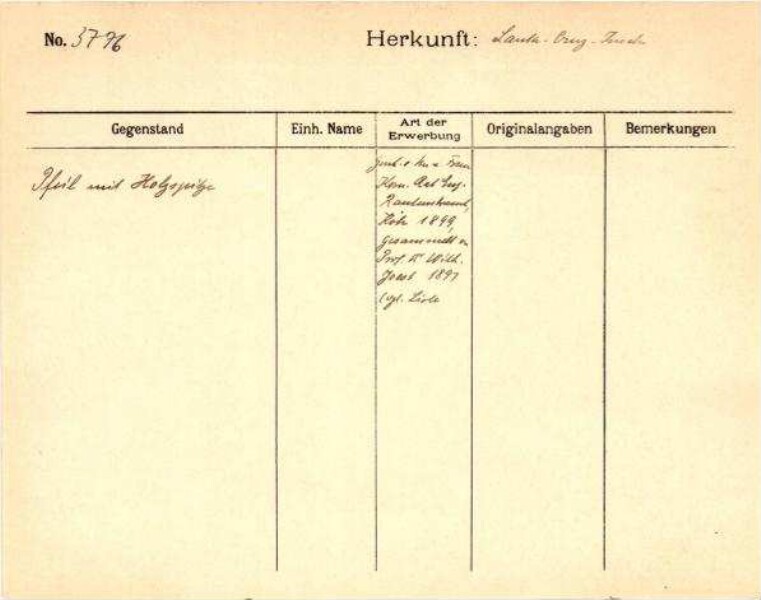 No. 3796
Herkunft: Santa-Cruz-Inseln
Gegenstand
Einh. Name
Art der Erwerbung
Originalangaben
Bemerkungen
Pfeil mit Holzspitze
Kom. Rat Eug.
Rautenstrauch,
Köln 1899,
gesammelt v.
Prof. Dr Wilh.
Joest 1897
(vgl. Liste